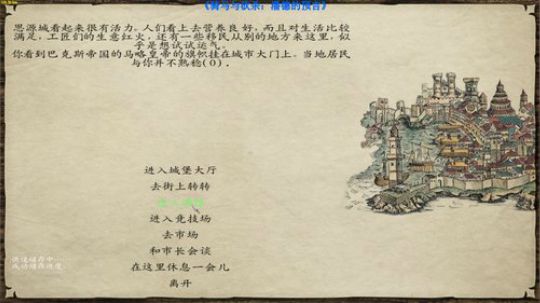 《骑马与砍杀：潘德的预言》
思源城看起来很有活力。人们看上去营养良好，而且对生活比较
满足，工匠们的生意红火，还有一些移民从别的地方来这里，似
乎是想试试运气。
你看到巴克斯帝国的马略皇帝的旗帜挂在城市大门上。当地居民
与你并不熟稔(0)．
进入城堡大厅
去街上转转
进入竞技场
去市场
和市长会谈
在这里休息一会儿
离开